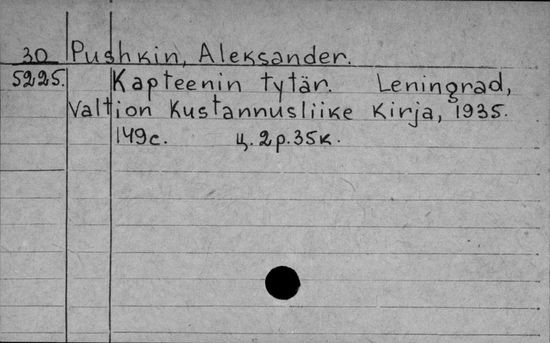 30 Pushkin, Aleksander.
5225. Kapteenin tytär. Leningrad,
Valtion Kustannusliike Kirja, 1935.
149с. ц. 2р. 35к.